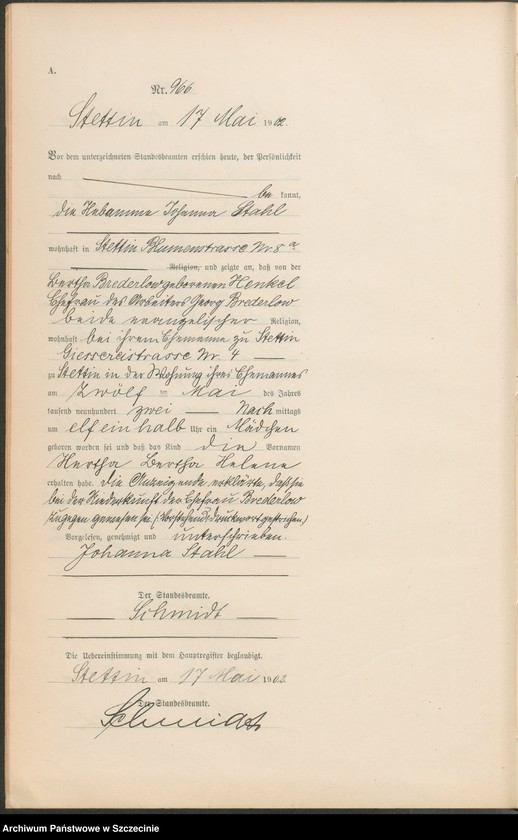 A.
Nr. 966
Stettin am 17 Mai 1902.
Vor dem unterzeichneten Standesbeamten erschien heute, der Persönlichkeit
nach
be kannt,
die Hebamme Johanna Stahl
wohnhaft in Stettin Blumenstrasse Nr. 8 a
Religion, und zeigte an, daß von der
Bertha Brederlow geborenen Henkel
Ehefrau des Arbeiters Georg Brederlow
beide evangelischer Religion,
wohnhaft bei ihrem Ehemanne zu Stettin
Giessereistrasse Nr. 4
zu Stettin in der Wohnung ihres Ehemannes
am zwölf ten Mai des Jahres
tausend neunhundert zwei Nach mittags
um elf ein halb Uhr ein Mädchen
geboren worden sei und daß das Kind die Vornamen
Hertha Bertha Helene
erhalten habe. Die Anzeigende erklärte, daß sie
bei der Niederkunft der Ehefrau Brederlow
zugegen gewesen sei. (Vorstehend 1 Druckwort gestrichen)
Vorgelesen, genehmigt und unterschrieben.
Johanna Stahl
Der Standesbeamte.
Schmidt
Die Uebereinstimmung mit dem Hauptregister beglaubigt.
Stettin am 17 Mai 1902.
Der Standesbeamte.
Schmidt
Archiwum Państwowe w Szczecinie